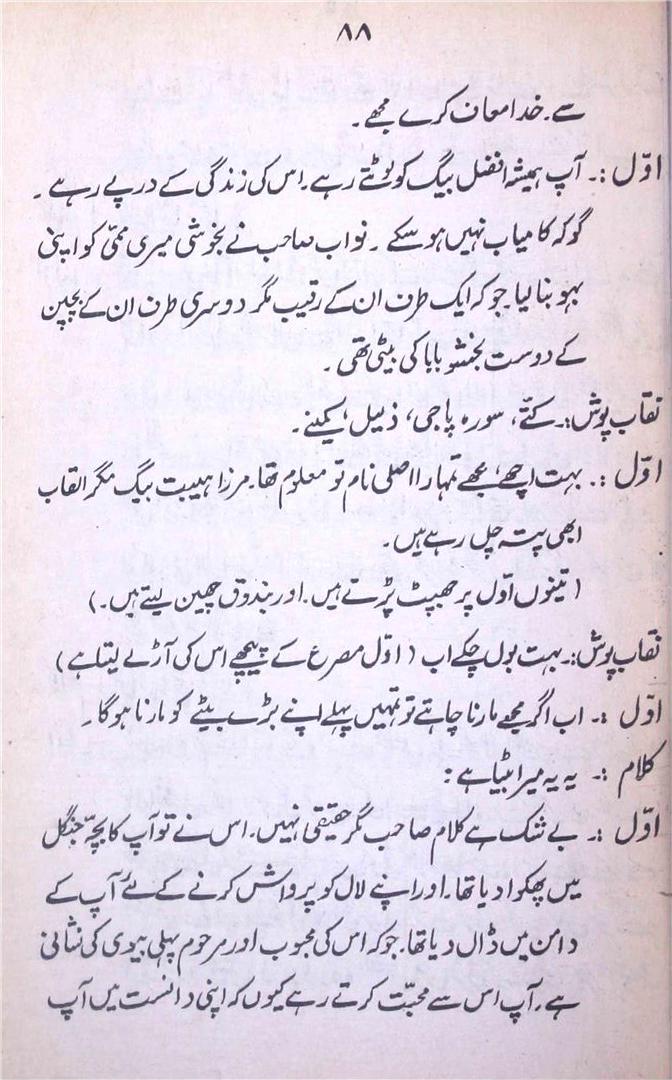 ۸۸
سے۔ خدا معاف کرے مجھے۔
اوّل :۔ آپ ہمیشہ افضل بیگ کو لوٹتے رہے۔ اس کی زندگی کے درپے رہے۔
گو کہ کامیاب نہیں ہو سکے۔ نواب صاحب نے بخوشی میری ممّی کو اپنی
بہو بنا لیا جو کہ ایک طرف ان کے رقیب مگر دوسری طرف ان کے بچپن
کے دوست بخشو بابا کی بیٹی تھی۔
نقاب پوش :۔ کتّے، سور، پاجی، ذلیل، کمینے۔
اوّل :۔ بہت اچھے، مجھے تمہارا اصلی نام تو معلوم تھا۔ مرزا ہیبت بیگ مگر القاب
ابھی پتہ چل رہے ہیں۔
(تینوں اوّل پر جھپٹ پڑتے ہیں۔ اور بندوق چھین لیتے ہیں۔)
نقاب پوش :۔ بہت بول چکے اب (اوّل مصرع کے پیچھے اس کی آڑ لے لیتا ہے)
اوّل :۔ اب اگر مجھے مارنا چاہتے تو تمہیں پہلے اپنے بڑے بیٹے کو مارنا ہوگا۔
کلام :۔ یہ یہ میرا بیٹا ہے :
اوّل :۔ بے شک ہے کلام صاحب مگر حقیقی نہیں۔ اس نے تو آپ کا بچّہ جنگل
میں پھکوا دیا تھا۔ اور اپنے لال کو پرواش کرنے کے لئے آپ کے
دامن میں ڈال دیا تھا۔ جو کہ اس کی محبوب اور مرحوم پہلی بیوی کی نشانی
ہے۔ آپ اس سے محبّت کرتے رہے کیوں کہ اپنی دانست میں آپ